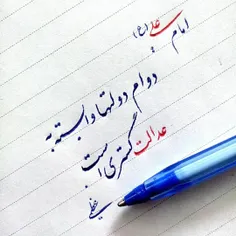 امام علی (ع)
دوام دولتها وابسته به
عدالت گستری است